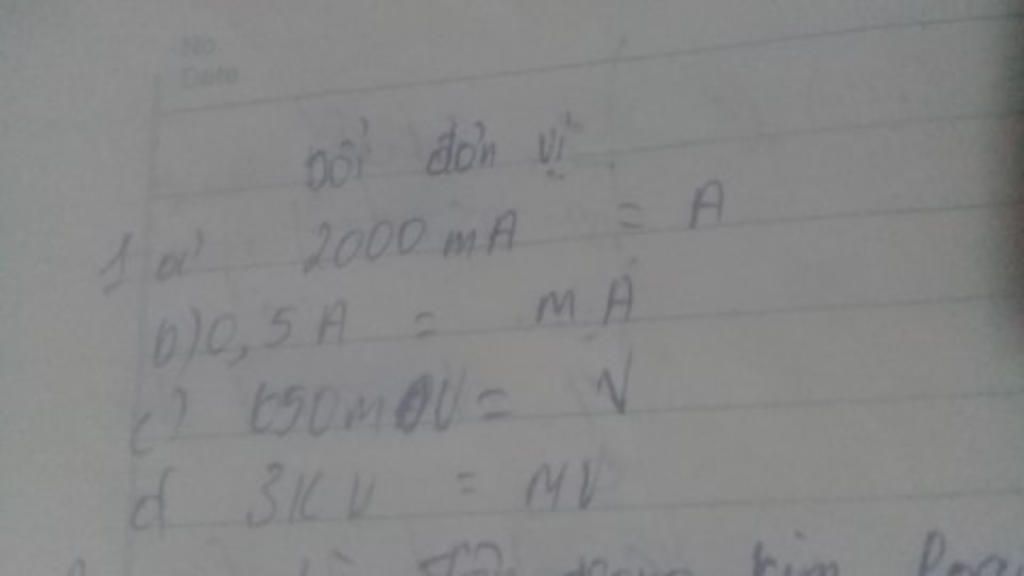 No
Date
Đổi đơn vị
1 a) 2000 mA = A
b) 0,5 A = mA
c) 650 mV = V
d 3KV = MV
kim